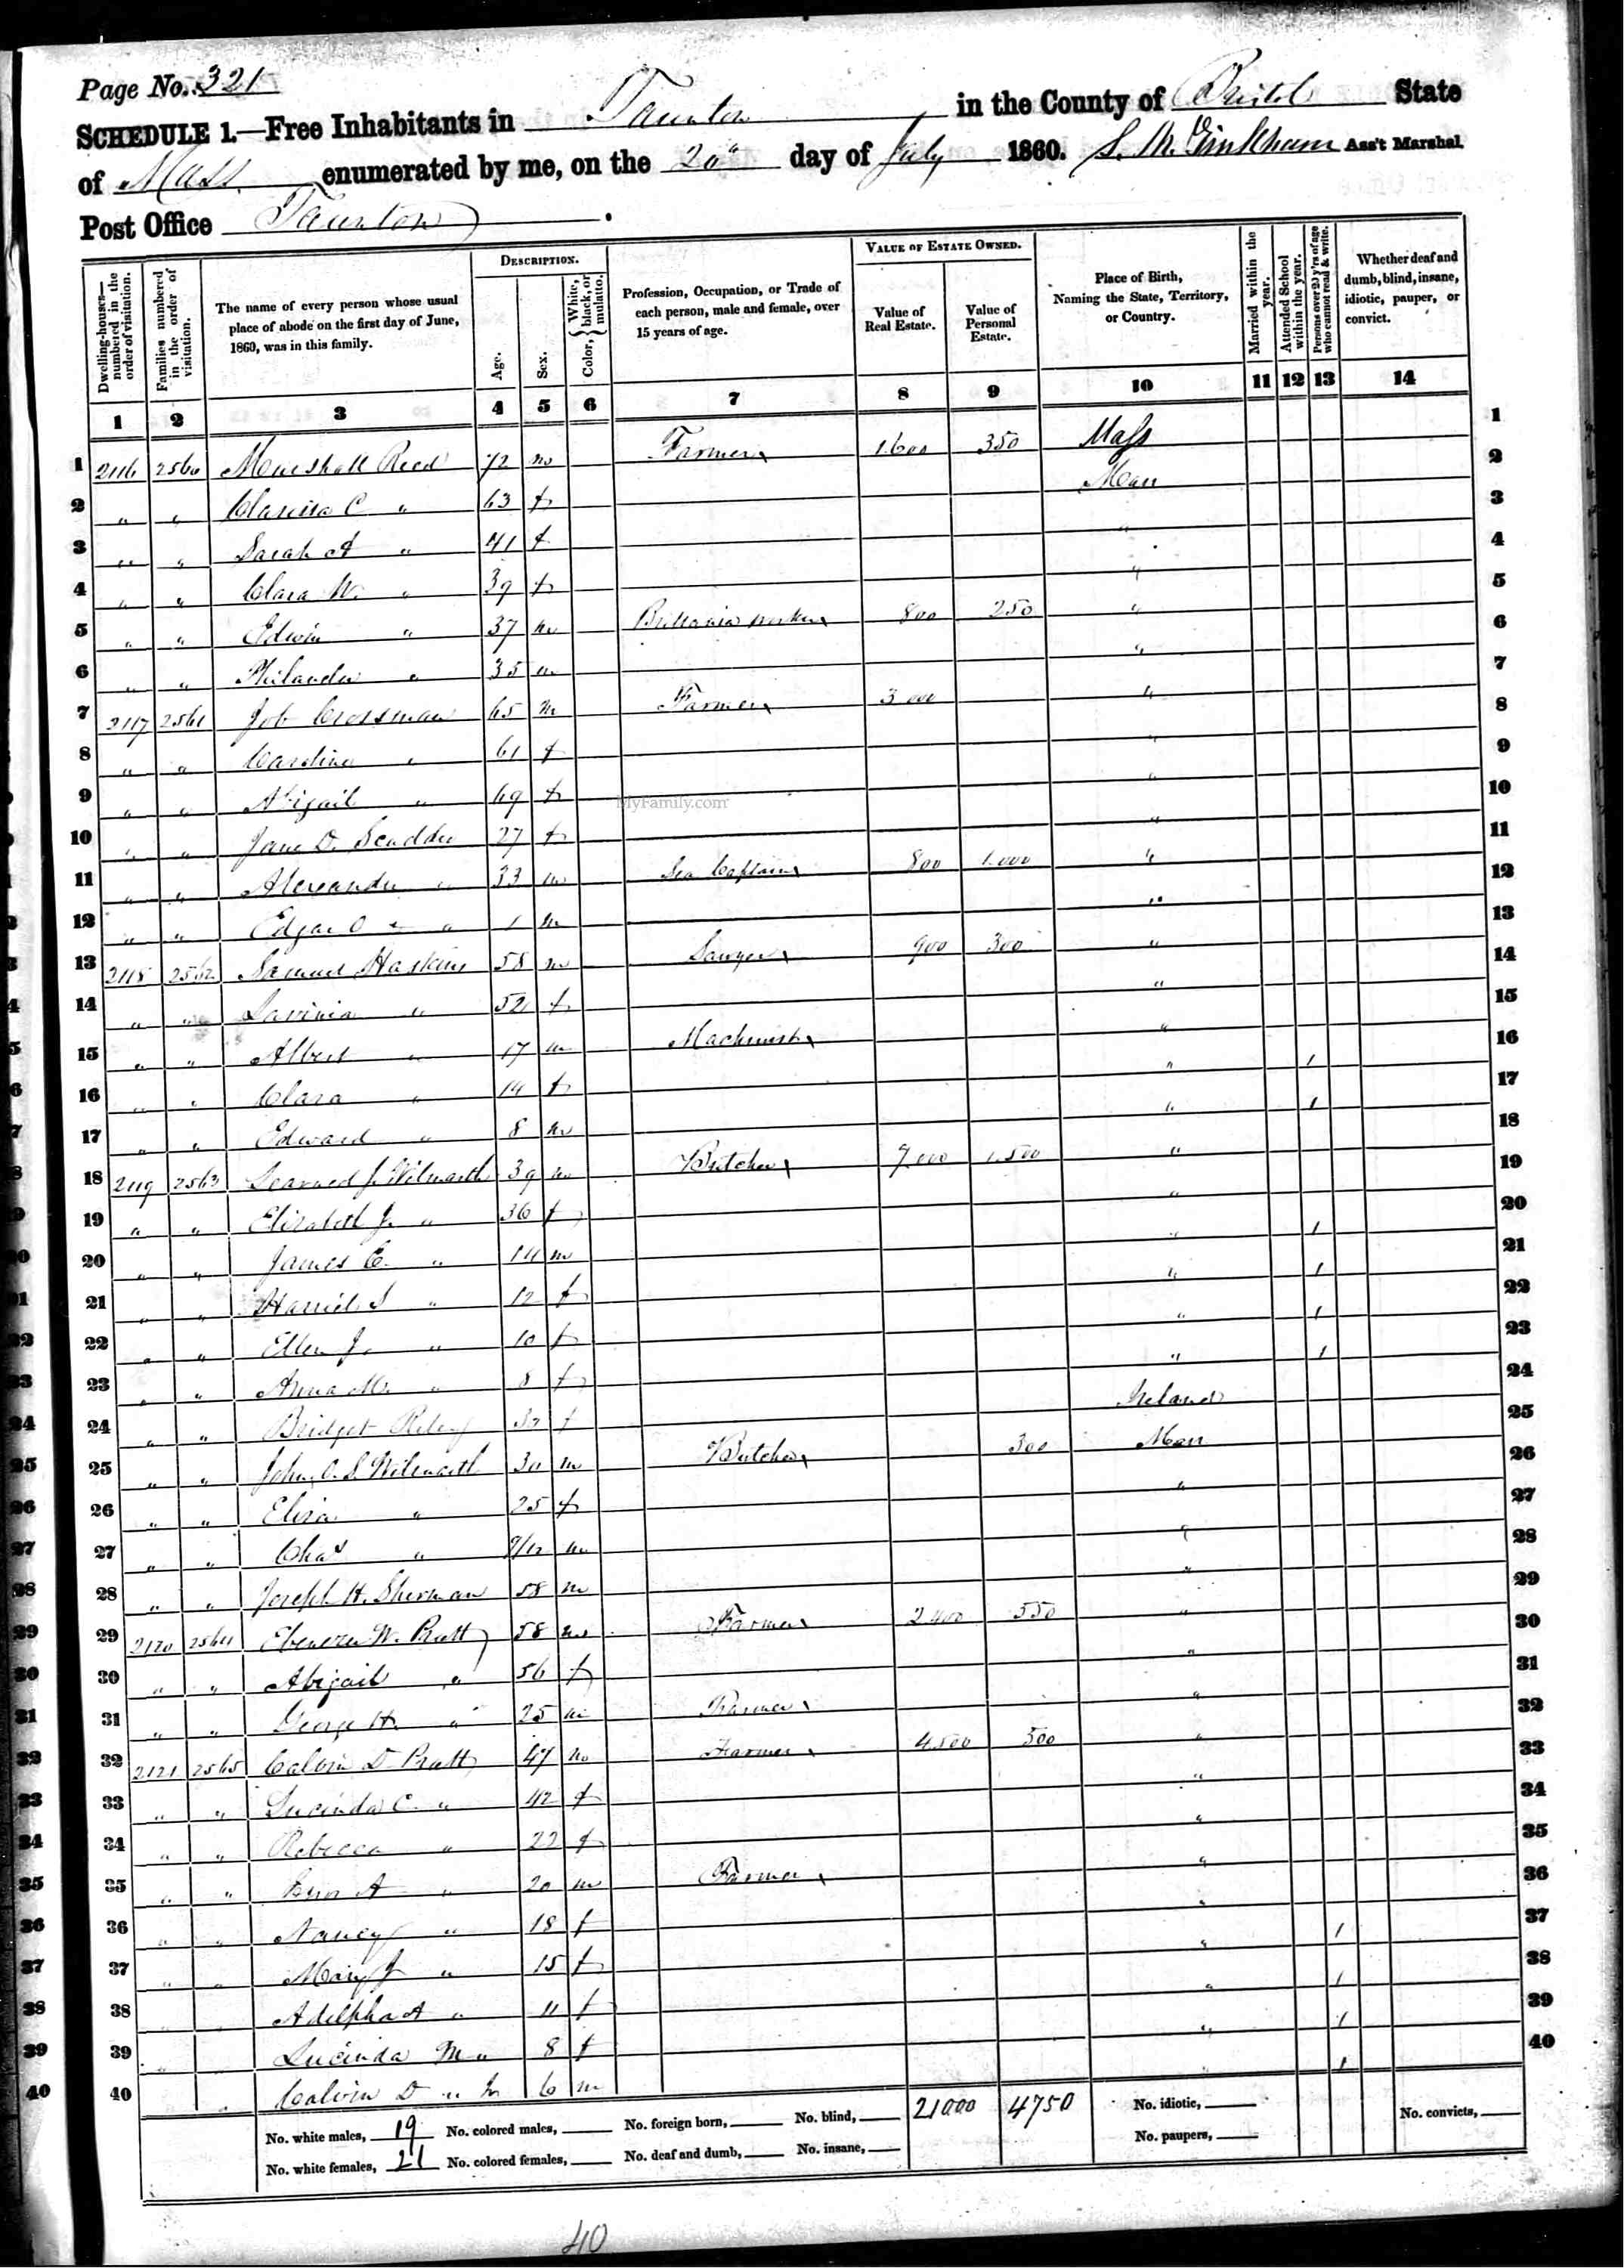 Page No. 321
SCHEDULE 1.—Free Inhabitants in Taunton in the County of Bristol State
of Mass. enumerated by me, on the 20" day of July 1860. Ass't Marshal.
Post Office Taunton
Dwelling-houses—numbered in the order of visitation.
Families numbered in the order of visitation.
The name of every person whose usual place of abode on the first day of June, 1860, was in this family.
DESCRIPTION.
Age.
Sex.
Color, { White, black, or mulatto.
Profession, Occupation, or Trade of each person, male and female, over 15 years of age.
VALUE OF ESTATE OWNED.
Value of Real Estate.
Value of Personal Estate.
Place of Birth, Naming the State, Territory, or Country.
Married within the year.
Attended School within the year.
Persons over 20 y'rs of age who cannot read & write.
Whether deaf and dumb, blind, insane, idiotic, pauper, or convict.
1 2 3 4 5 6 7 8 9 10 11 12 13 14
1 2116 2560 Marshall Reed 72 m Farmer 1.600 350 Mass 1
2 " " Clarissa C " 63 f Mass 2
3 " " Sarah A " 41 f " 3
4 " " Clara W. " 39 f " 4
5 " " Edwin " 37 m Brittania worker 800 250 " 5
6 " " Philander " 35 m " 6
7 2117 2561 Job Crossman 65 m Farmer 3.000 " 7
8 " " Caroline " 61 f " 8
9 " " Abigail " 69 f " 9
MyFamily.com
10 " " Jane D. Scudder 27 f " 10
11 " " Alexander " 33 m Sea Captain 800 1.000 " 11
12 " " Edgar O " 1 m " 12
13 2118 2562 Samuel Haskins 58 m Sawyer 900 300 " 13
14 " " Lavinia " 52 f " 14
15 " " Albert " 17 m Machinist " 15
16 " " Clara " 14 f " 1 16
17 " " Edward " 8 m " 1 17
18 2119 2563 Learned J. Wilmarth 39 m Butcher 7.000 1.500 " 18
19 " " Elizabeth J. " 36 f " 19
20 " " James E. " 14 m " 1 20
21 " " Harriet S " 12 f " 1 21
22 " " Ellen J. " 10 f " 1 22
23 " " Anna M. " 8 f " 1 23
24 " " Bridget Riley 30 f Ireland 24
25 " " John O. S Wilmarth 30 m Butcher 300 Mass 25
26 " " Eliza " 25 f " 26
27 " " Chas " 9/12 m " 27
28 " " Joseph H. Sherman 58 m " 28
29 2120 2564 Ebenezer W. Pratt 58 m Farmer 2.400 550 " 29
30 " " Abigail " 56 f " 30
31 " " George H. " 25 m Farmer " 31
32 2121 2565 Calvin D Pratt 47 m Farmer 4.500 500 " 32
33 " " Lucinda C. " 42 f " 33
34 " " Rebecca " 22 f " 34
35 " " A " 20 m Farmer " 35
36 " " Nancy " 18 f " 36
37 " " Mary J " 15 f " 1 37
38 Adelpha A " 11 f " 1 38
39 " Lucinda M " 8 f " 1 39
40 Calvin D " Jr 6 m " 1 40
No. white males, 19 No. colored males, No. foreign born, No. blind, 21000 4750 No. idiotic, No. convicts,
No. white females, 21 No. colored females, No. deaf and dumb, No. insane, No. paupers,
40